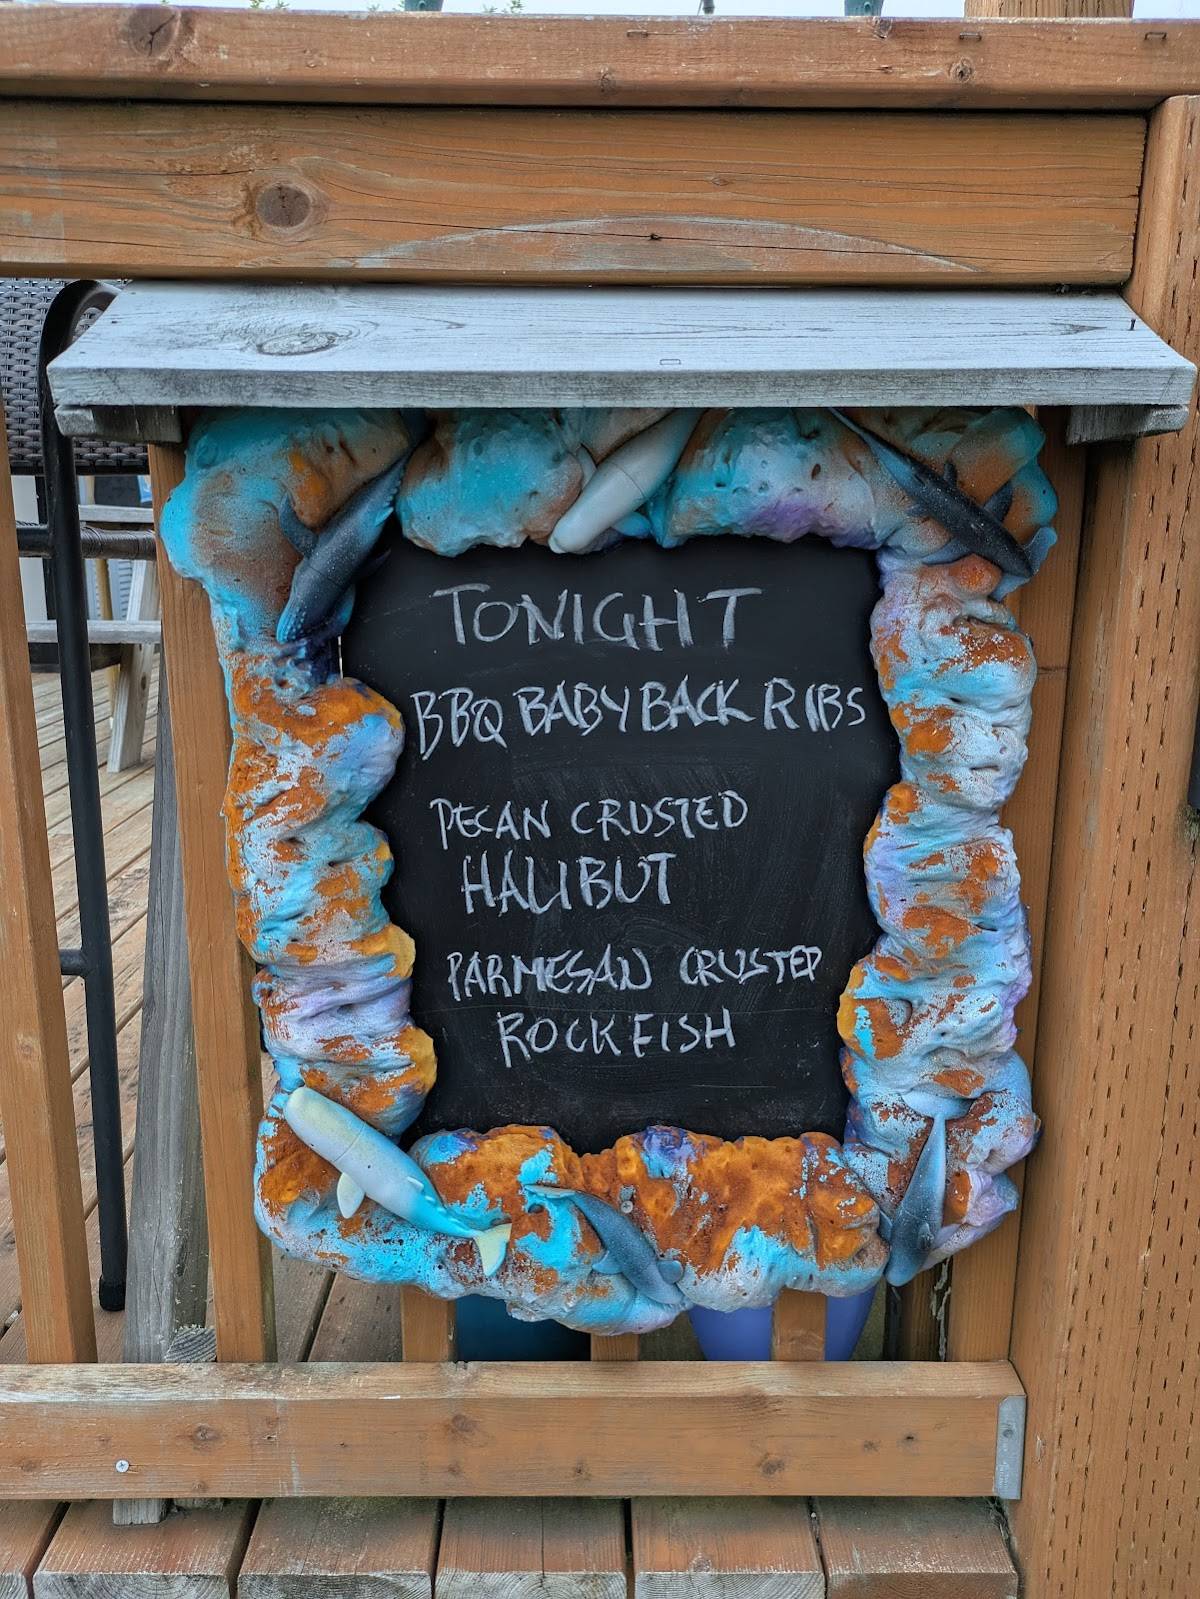 TONIGHT
BBQ BABY BACK RIBS
PECAN CRUSTED
HALIBUT
PARMESAN CRUSTED
ROCKFISH